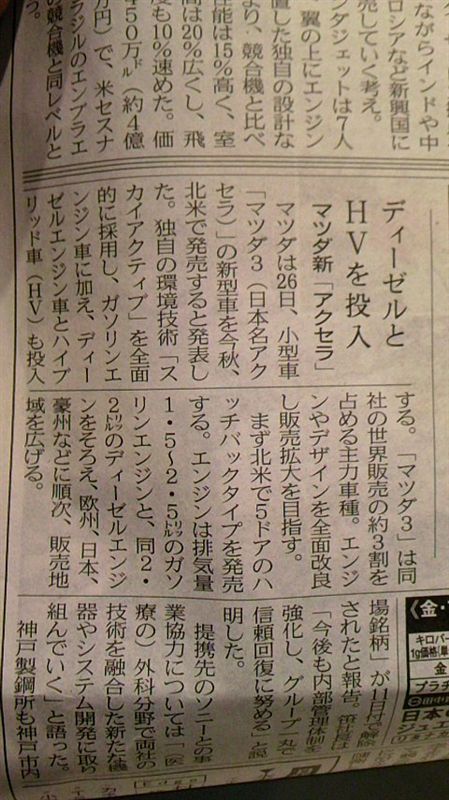 ながらインドや中
ロシアなど新興国に
売していく考え。
ンダジェットは7人
、翼の上にエンジン
置した独自の設計な
より、競合機と比べ
性能は15%高く、室
高は20%広くし、飛
度も10%速めた。価
450万㌦(約4億
万円)で、米セスナ
ラジルのエンブラエ
の競合機と同レベルと
う。
ディーゼルと
HVを投入
マツダ新「アクセラ」
マツダは26日、小型車
「マツダ3(日本名アク
セラ)」の新型車を今秋、
北米で発売すると発表し
た。独自の環境技術「ス
カイアクティブ」を全面
的に採用し、ガソリンエ
ンジン車に加え、ディー
ゼルエンジン車とハイブ
リッド車(HV)も投入
する。「マツダ3」は同
社の世界販売の約3割を
占める主力車種。エンジ
ンやデザインを全面改良
し販売拡大を目指す。
まず北米で5ドアのハ
ッチバックタイプを発売
する。エンジンは排気量
1・5〜2・5㍑のガソ
リンエンジンと、同2・
2㍑のディーゼルエンジ
ンをそろえ、欧州、日本、
豪州などに順次、販売地
域を広げる。
《金・
キロバー
1g価格
金
プラチ
日本
ジュエ
場銘柄」が11日付で解除
されたと報告。笹社長は
「今後も内部管理体制を
強化し、グループ一丸で
信頼回復に努める」と説
明した。
提携先のソニーとの事
業協力については「(医
療の)外科分野で両社の
技術を融合した新たな機
器やシステム開発に取り
組んでいく」と語った。
神戸製鋼所も神戸市内